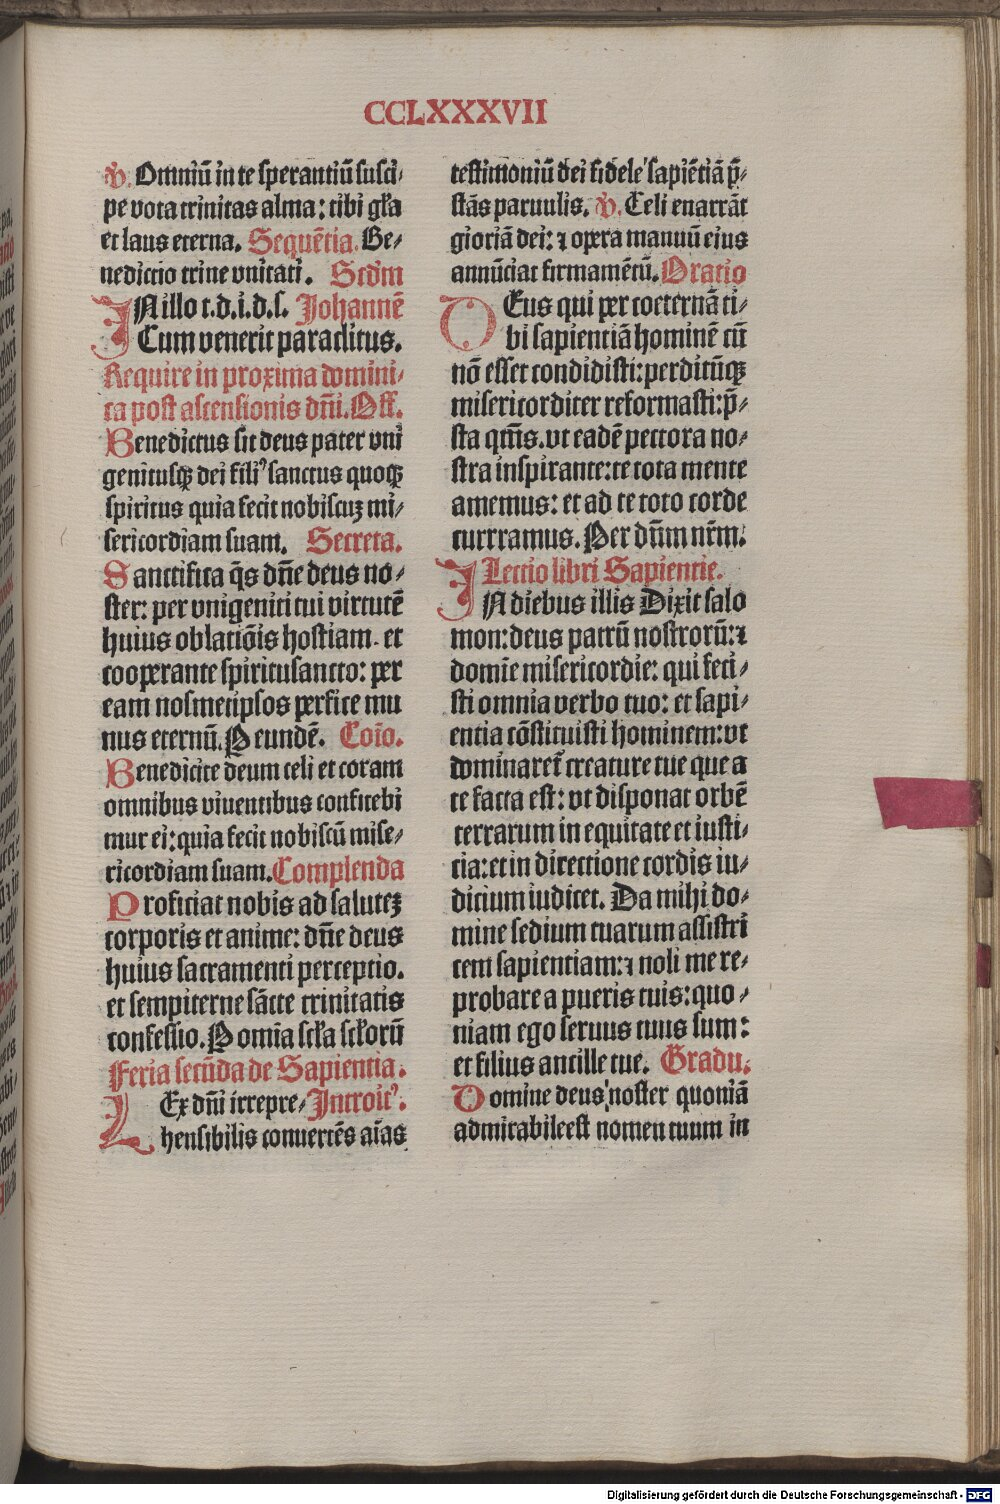 CCLXXXVII
℣. Omniū in te sperantiū susci⸗
pe vota trinitas alma: tibi gl̄a
et laus eterna. Sequētia. Be⸗
nedictio trine vnitati. Scd̄m
INillo t.d.i.d.s. Johannē
Cum venerit paraclitus.
Require in proxima domini⸗
ca post ascensionis dn̄i. Off.
Benedictus sit deus pater vni
genitusqꝫ dei filiꝰ sanctus quoqꝫ
spiritus quia fecit nobiscuꝫ mi⸗
sericordiam suam. Secreta.
Sanctifica q̄s dn̄e deus no⸗
ster: per vnigeniti tui virtutē
huius oblatiōis hostiam. et
cooperante spiritusancto: per
eam nosmetipsos perfice mu
nus eternū. P eundē. Coīo.
Benedicite deum celi et coram
omnibus viuentibus confitebi
mur ei: quia fecit nobiscū mise⸗
ricordiam suam. Complenda
Proficiat nobis ad saluteꝫ
corporis et anime: dn̄e deus
huius sacramenti perceptio.
et sempiterne sācte trinitatis
confessio. P omīa scl̄a scl̄orū
Feria secūda de Sapientia.
LEx dn̄i irrepre⸗ Introitꝰ.
hensibilis conuertēs aīas
testimoniū dei fidele sapiētiā p̄⸗
stās paruulis. ℣. Celi enarrāt
gioriā dei: ⁊ opera manuū eius
annūciat firmamētū. Oratio
DEus qui per coeternā ti⸗
bi sapientiā hominē cū
nō esset condidisti: perditūqꝫ
misericorditer reformasti: p̄⸗
sta qm̄s. vt eadē pectora no⸗
stra inspirante: te tota mente
amemus: et ad te toto corde
currramus. Per dn̄m nr̄m.
Lectio libri Sapientie.
IN diebus illis Dixit salo
mon: deus patrū nostrorū: ⁊
domīe misericordie: qui feci⸗
sti omnia verbo tuo: et sapi⸗
entia cōstituisti hominem: vt
dominaret̄ creature tue que a
te facta est: vt disponat orbē
terrarum in equitate et iusti⸗
tia: et in directione cordis iu⸗
dicium iudicet. Da mihi do⸗
mine sedium tuarum assistri
cem sapientiam: ⁊ noli me re⸗
probare a pueris tuis: quo⸗
niam ego seruus tuus sum:
et filius ancille tue. Gradu.
Domine deus noster quoniā
admirabileest nomen tuum in
Digitalisierung gefördert durch die Deutsche Forschungsgemeinschaft - DFG